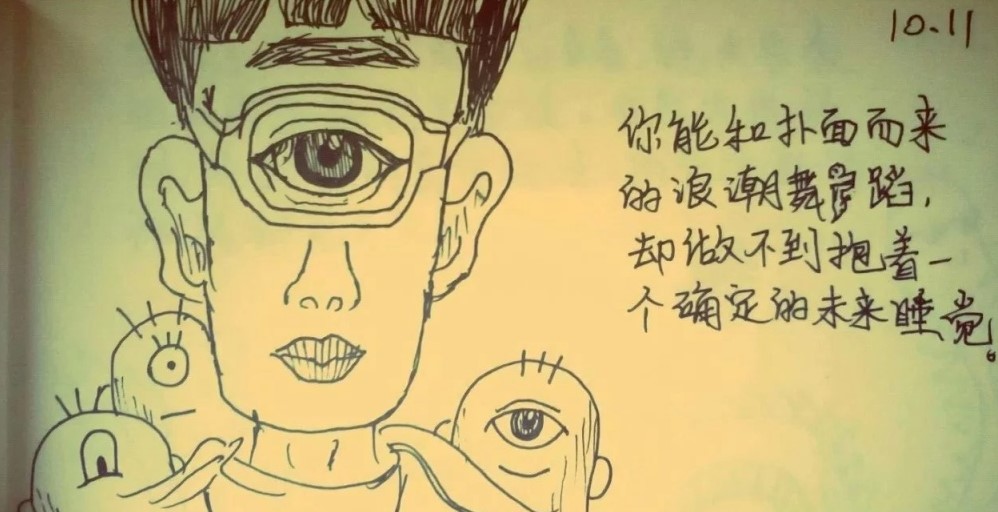 10.11
你能和扑面而来
的浪潮舞蹈,
却做不到抱着一
个确定的未来睡觉。